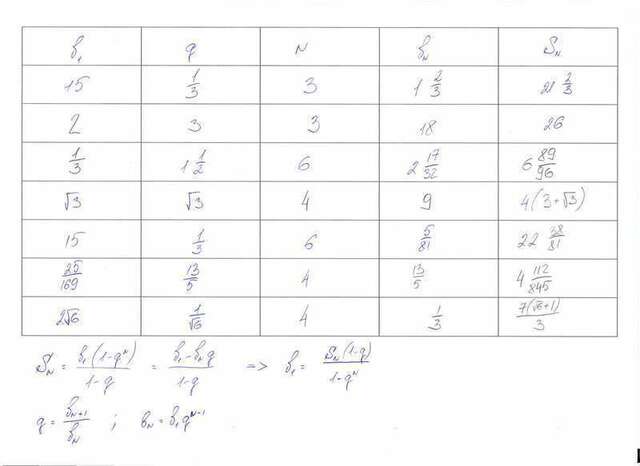 b₁ q N bₙ Sₙ
15 1/3 3 1 2/3 21 2/3
2 3 3 18 26
1/3 1 1/2 6 2 17/32 6 89/96
√3 √3 4 9 4(3+√3)
15 1/3 6 5/81 22 38/81
25/169 13/5 4 13/5 4 112/845
2√6 1/√6 4 1/3 7(√6+1)/3
Sₙ = b₁(1-qᴺ)/1-q = b₁-bₙq/1-q => b₁ = Sₙ(1-q)/1-qᴺ
q = bₙ₊₁/bₙ ; bₙ = b₁qᴺ⁻¹